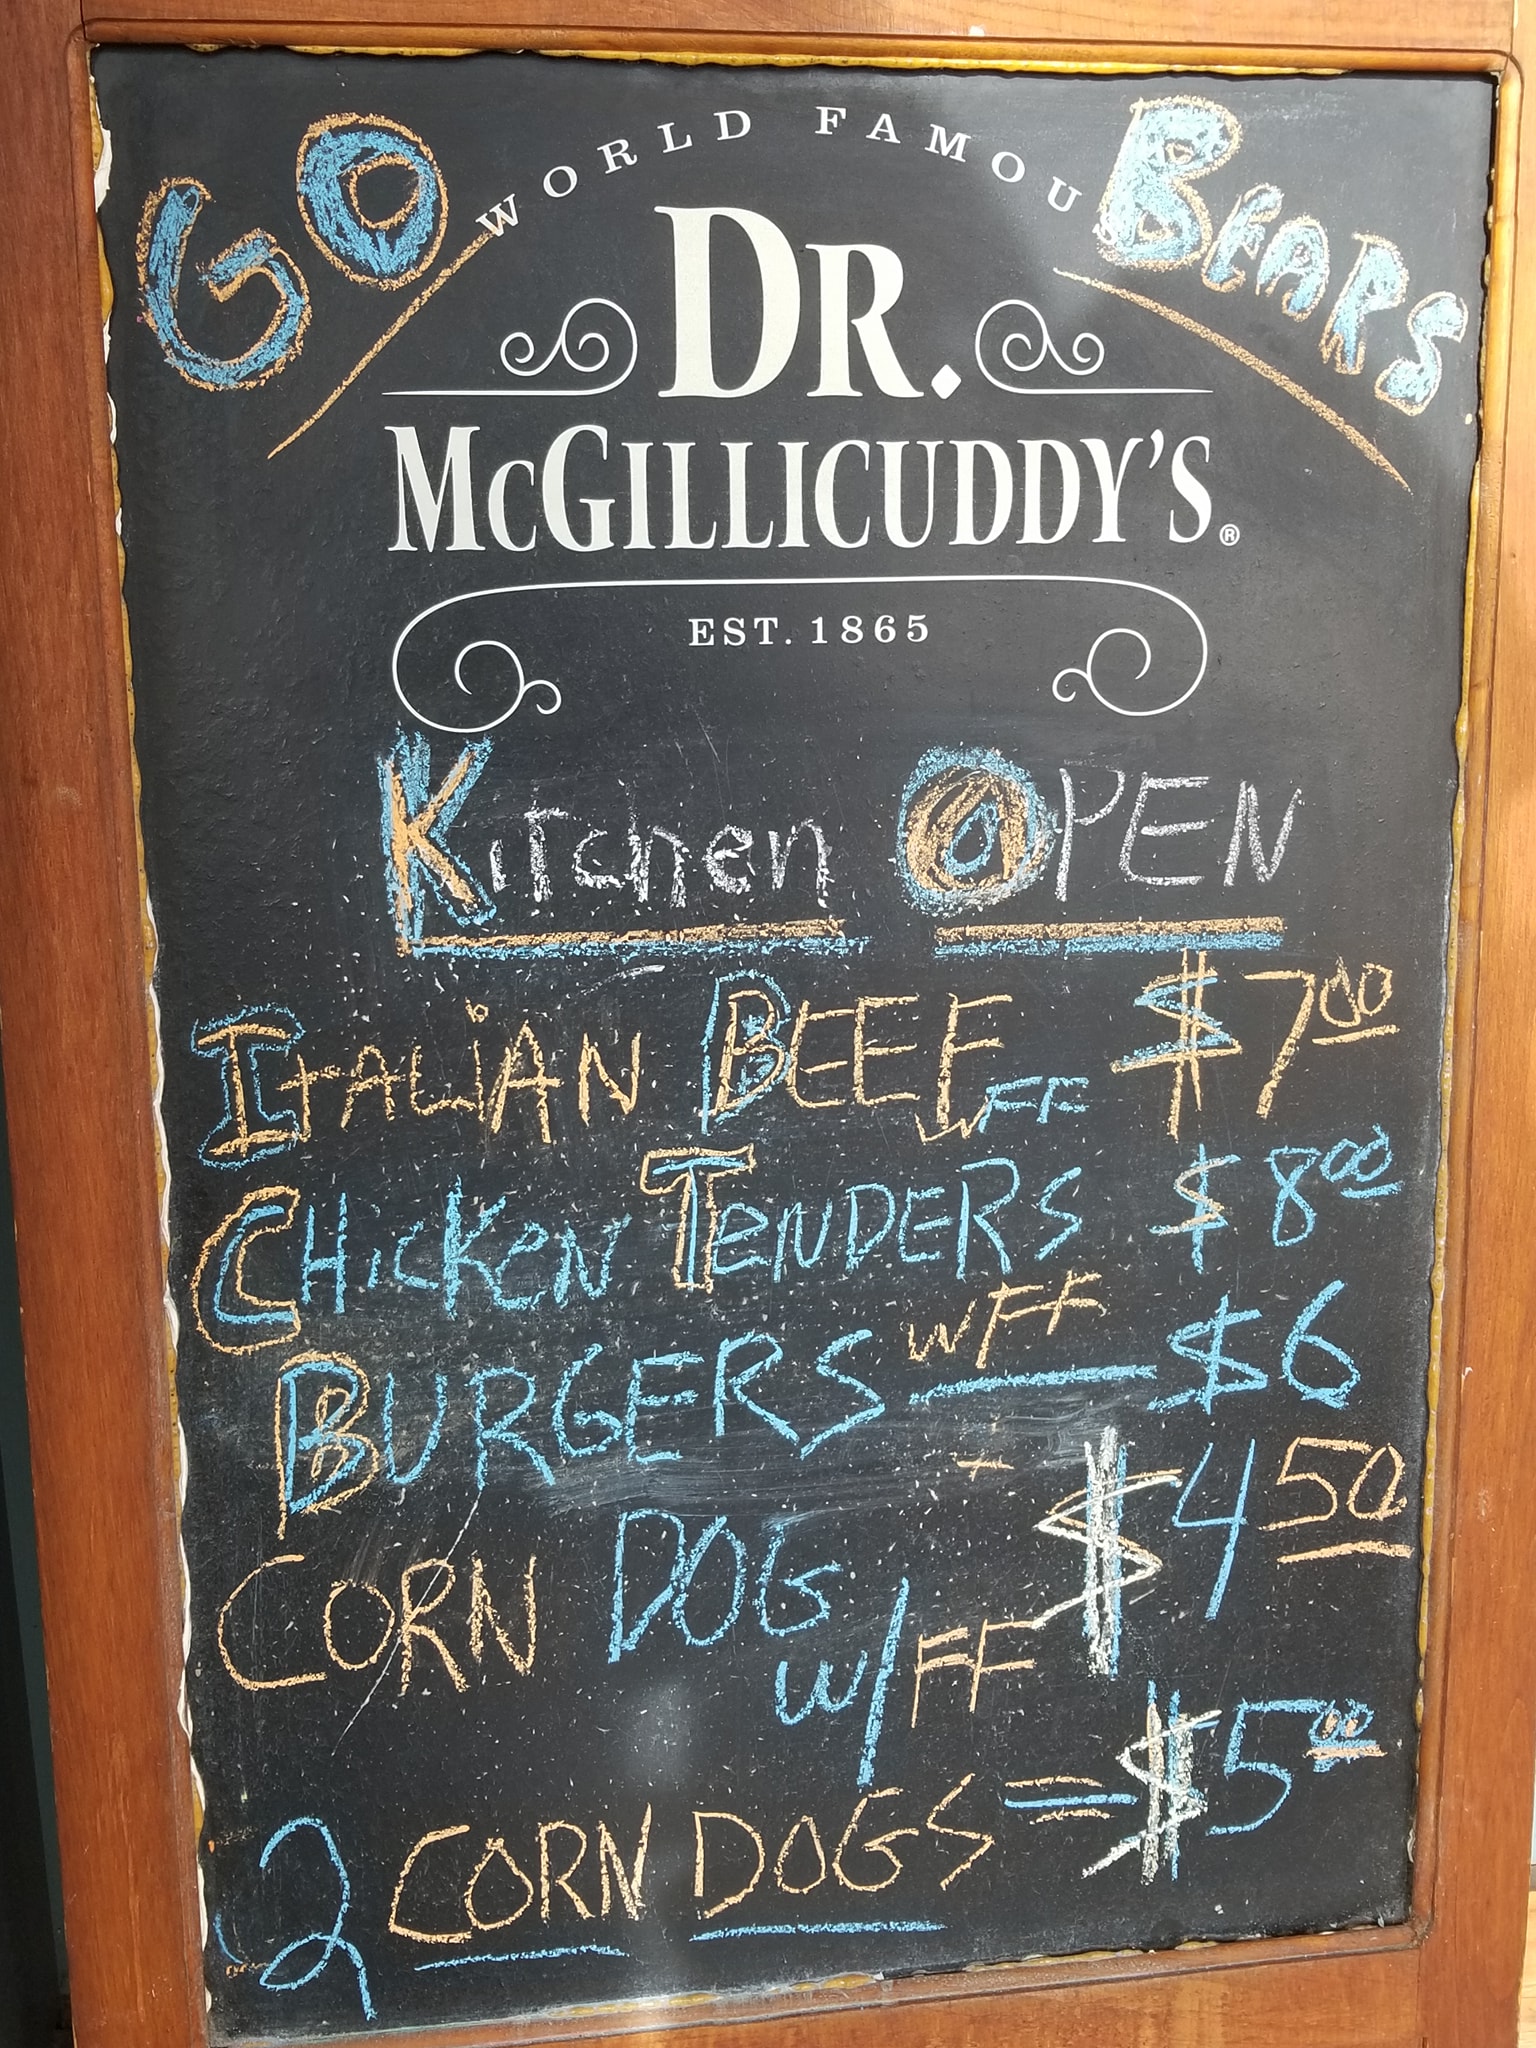 GO BEARS
WORLD FAMOUS
DR.
McGILLICUDDY'S®
EST. 1865
Kitchen OPEN
ITALiAN BEEF WFF $7.00
CHicKeN TeNDERS $8.00
WFF
BURGERS $6
CORN DOG W/FF - $4.50
2 CORN DOGS = $5.00